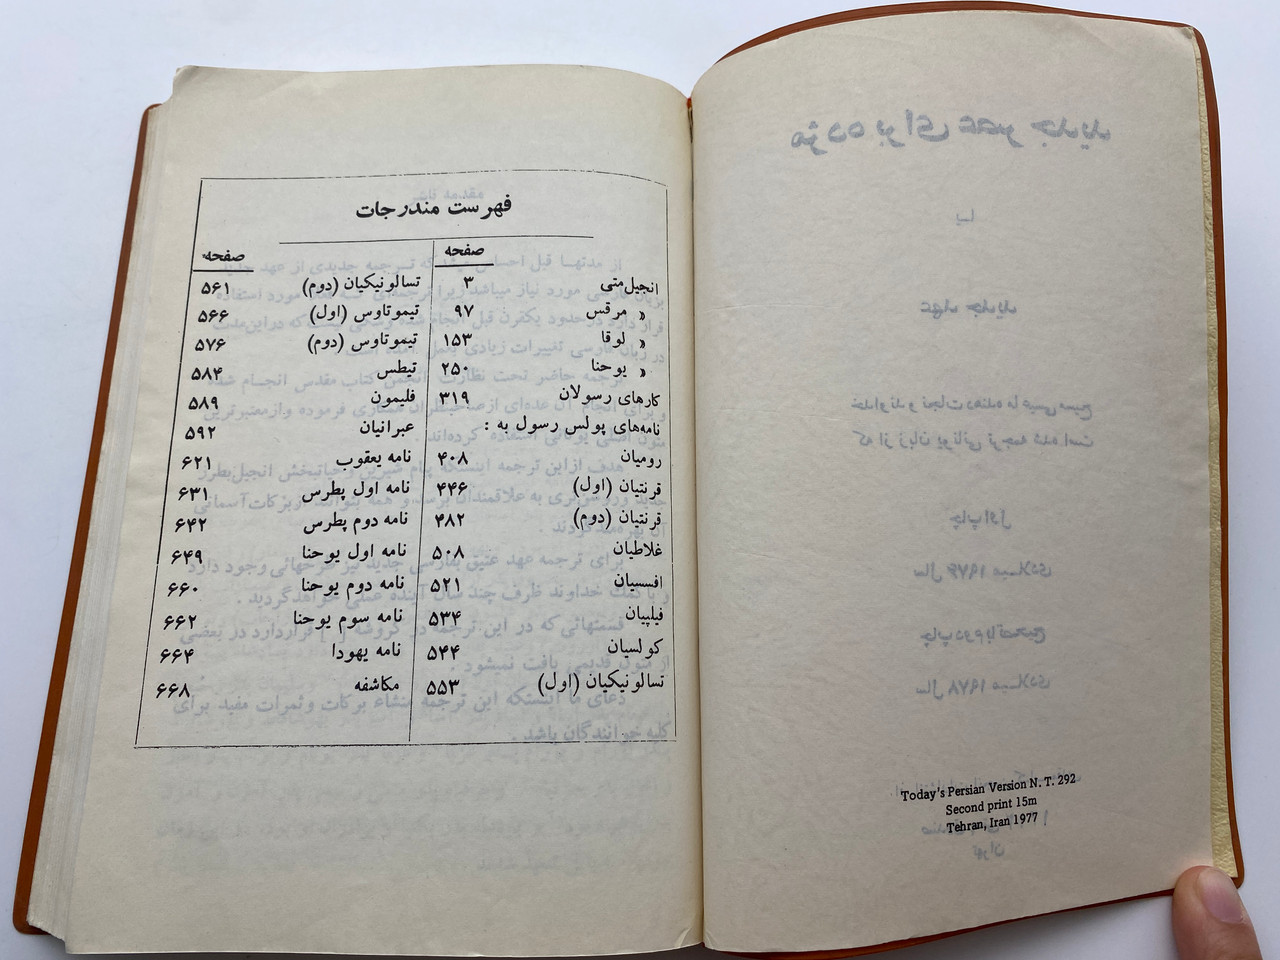 Today's Persian Version N. T. 292
Second print 15m
Tehran, Iran 1977
فهرست مندرجات
صفحه
انجیل متی ۳
« مرقس ۹۷
« لوقا ۱۵۳
« یوحنا ۲۵۰
کارهای رسولان ۳۱۹
نامه‌های پولس رسول به :
رومیان ۴۰۸
قرنتیان (اول) ۴۴۶
قرنتیان (دوم) ۴۸۲
غلاطیان ۵۰۸
افسسیان ۵۲۱
فیلپیان ۵۳۴
کولسیان ۵۴۴
تسالونیکیان (اول) ۵۵۳
صفحه
تسالونیکیان (دوم) ۵۶۱
تیموتاوس (اول) ۵۶۶
تیموتاوس (دوم) ۵۷۶
تیطس ۵۸۴
فلیمون ۵۸۹
عبرانیان ۵۹۲
نامه یعقوب ۶۲۱
نامه اول پطرس ۶۳۱
نامه دوم پطرس ۶۴۲
نامه اول یوحنا ۶۴۹
نامه دوم یوحنا ۶۶۰
نامه سوم یوحنا ۶۶۲
نامه یهودا ۶۶۴
مکاشفه ۶۶۸